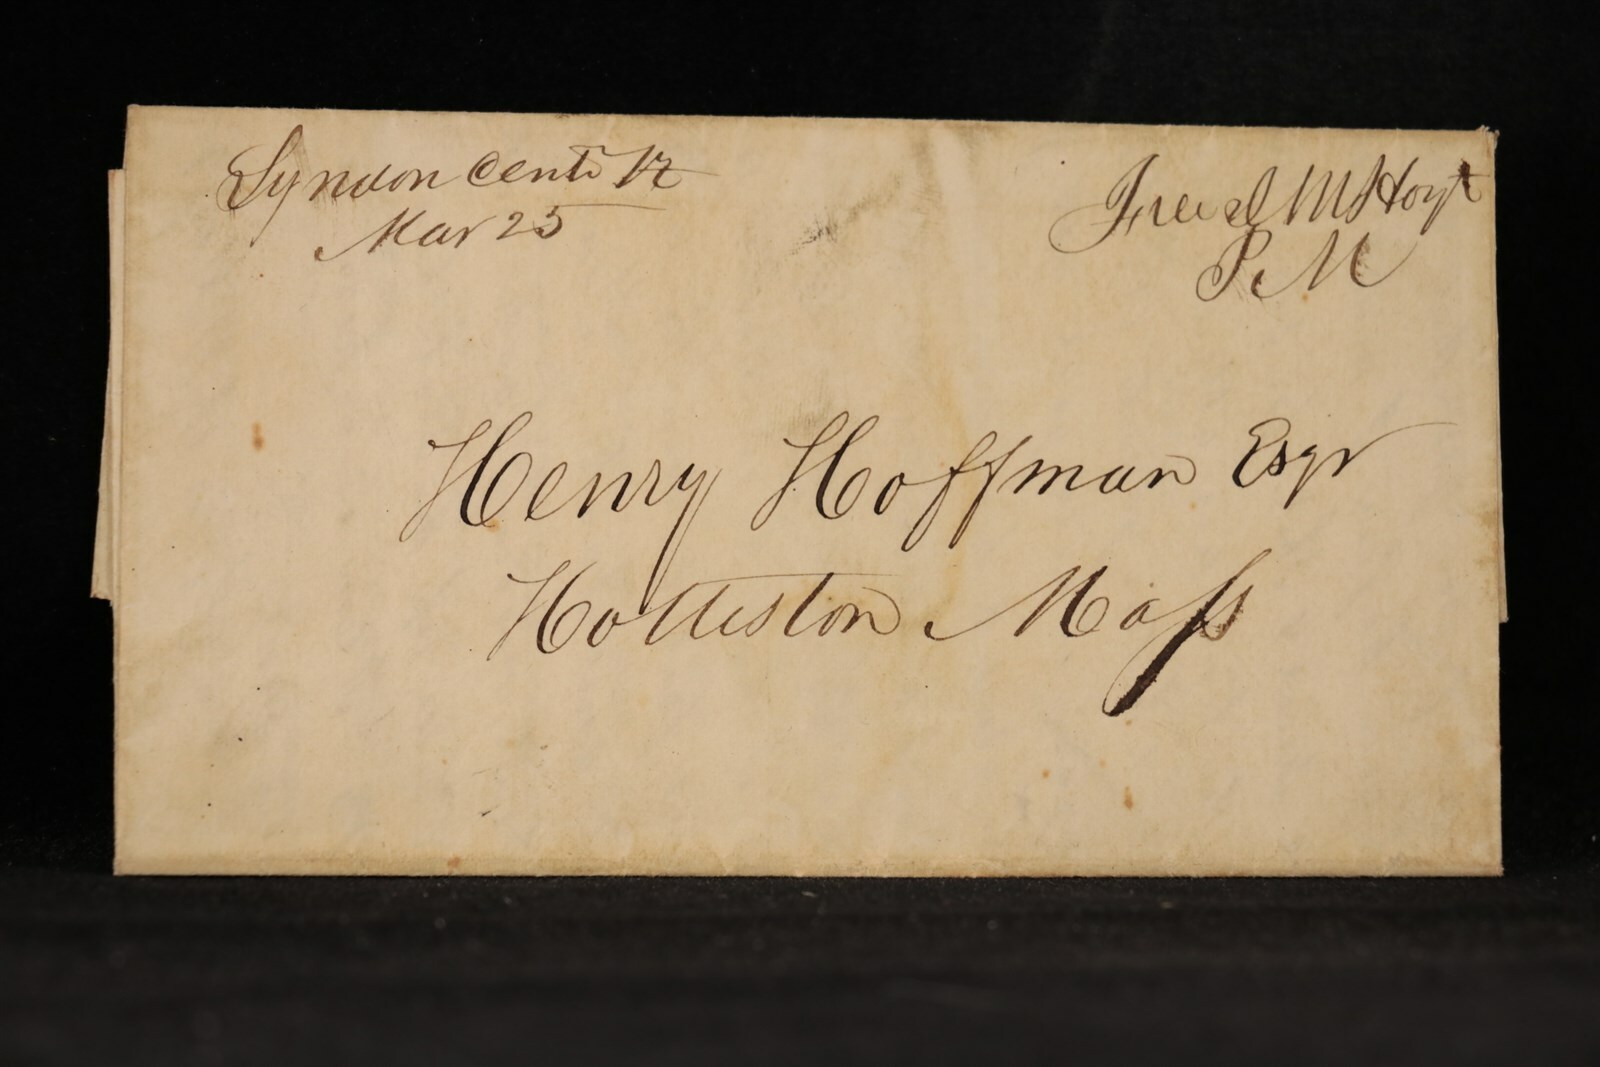 Lyndon Centr Vt
Mar 25
Free d M Hoyt
P. M
Henry Hoffman Esqr
Holliston Mass